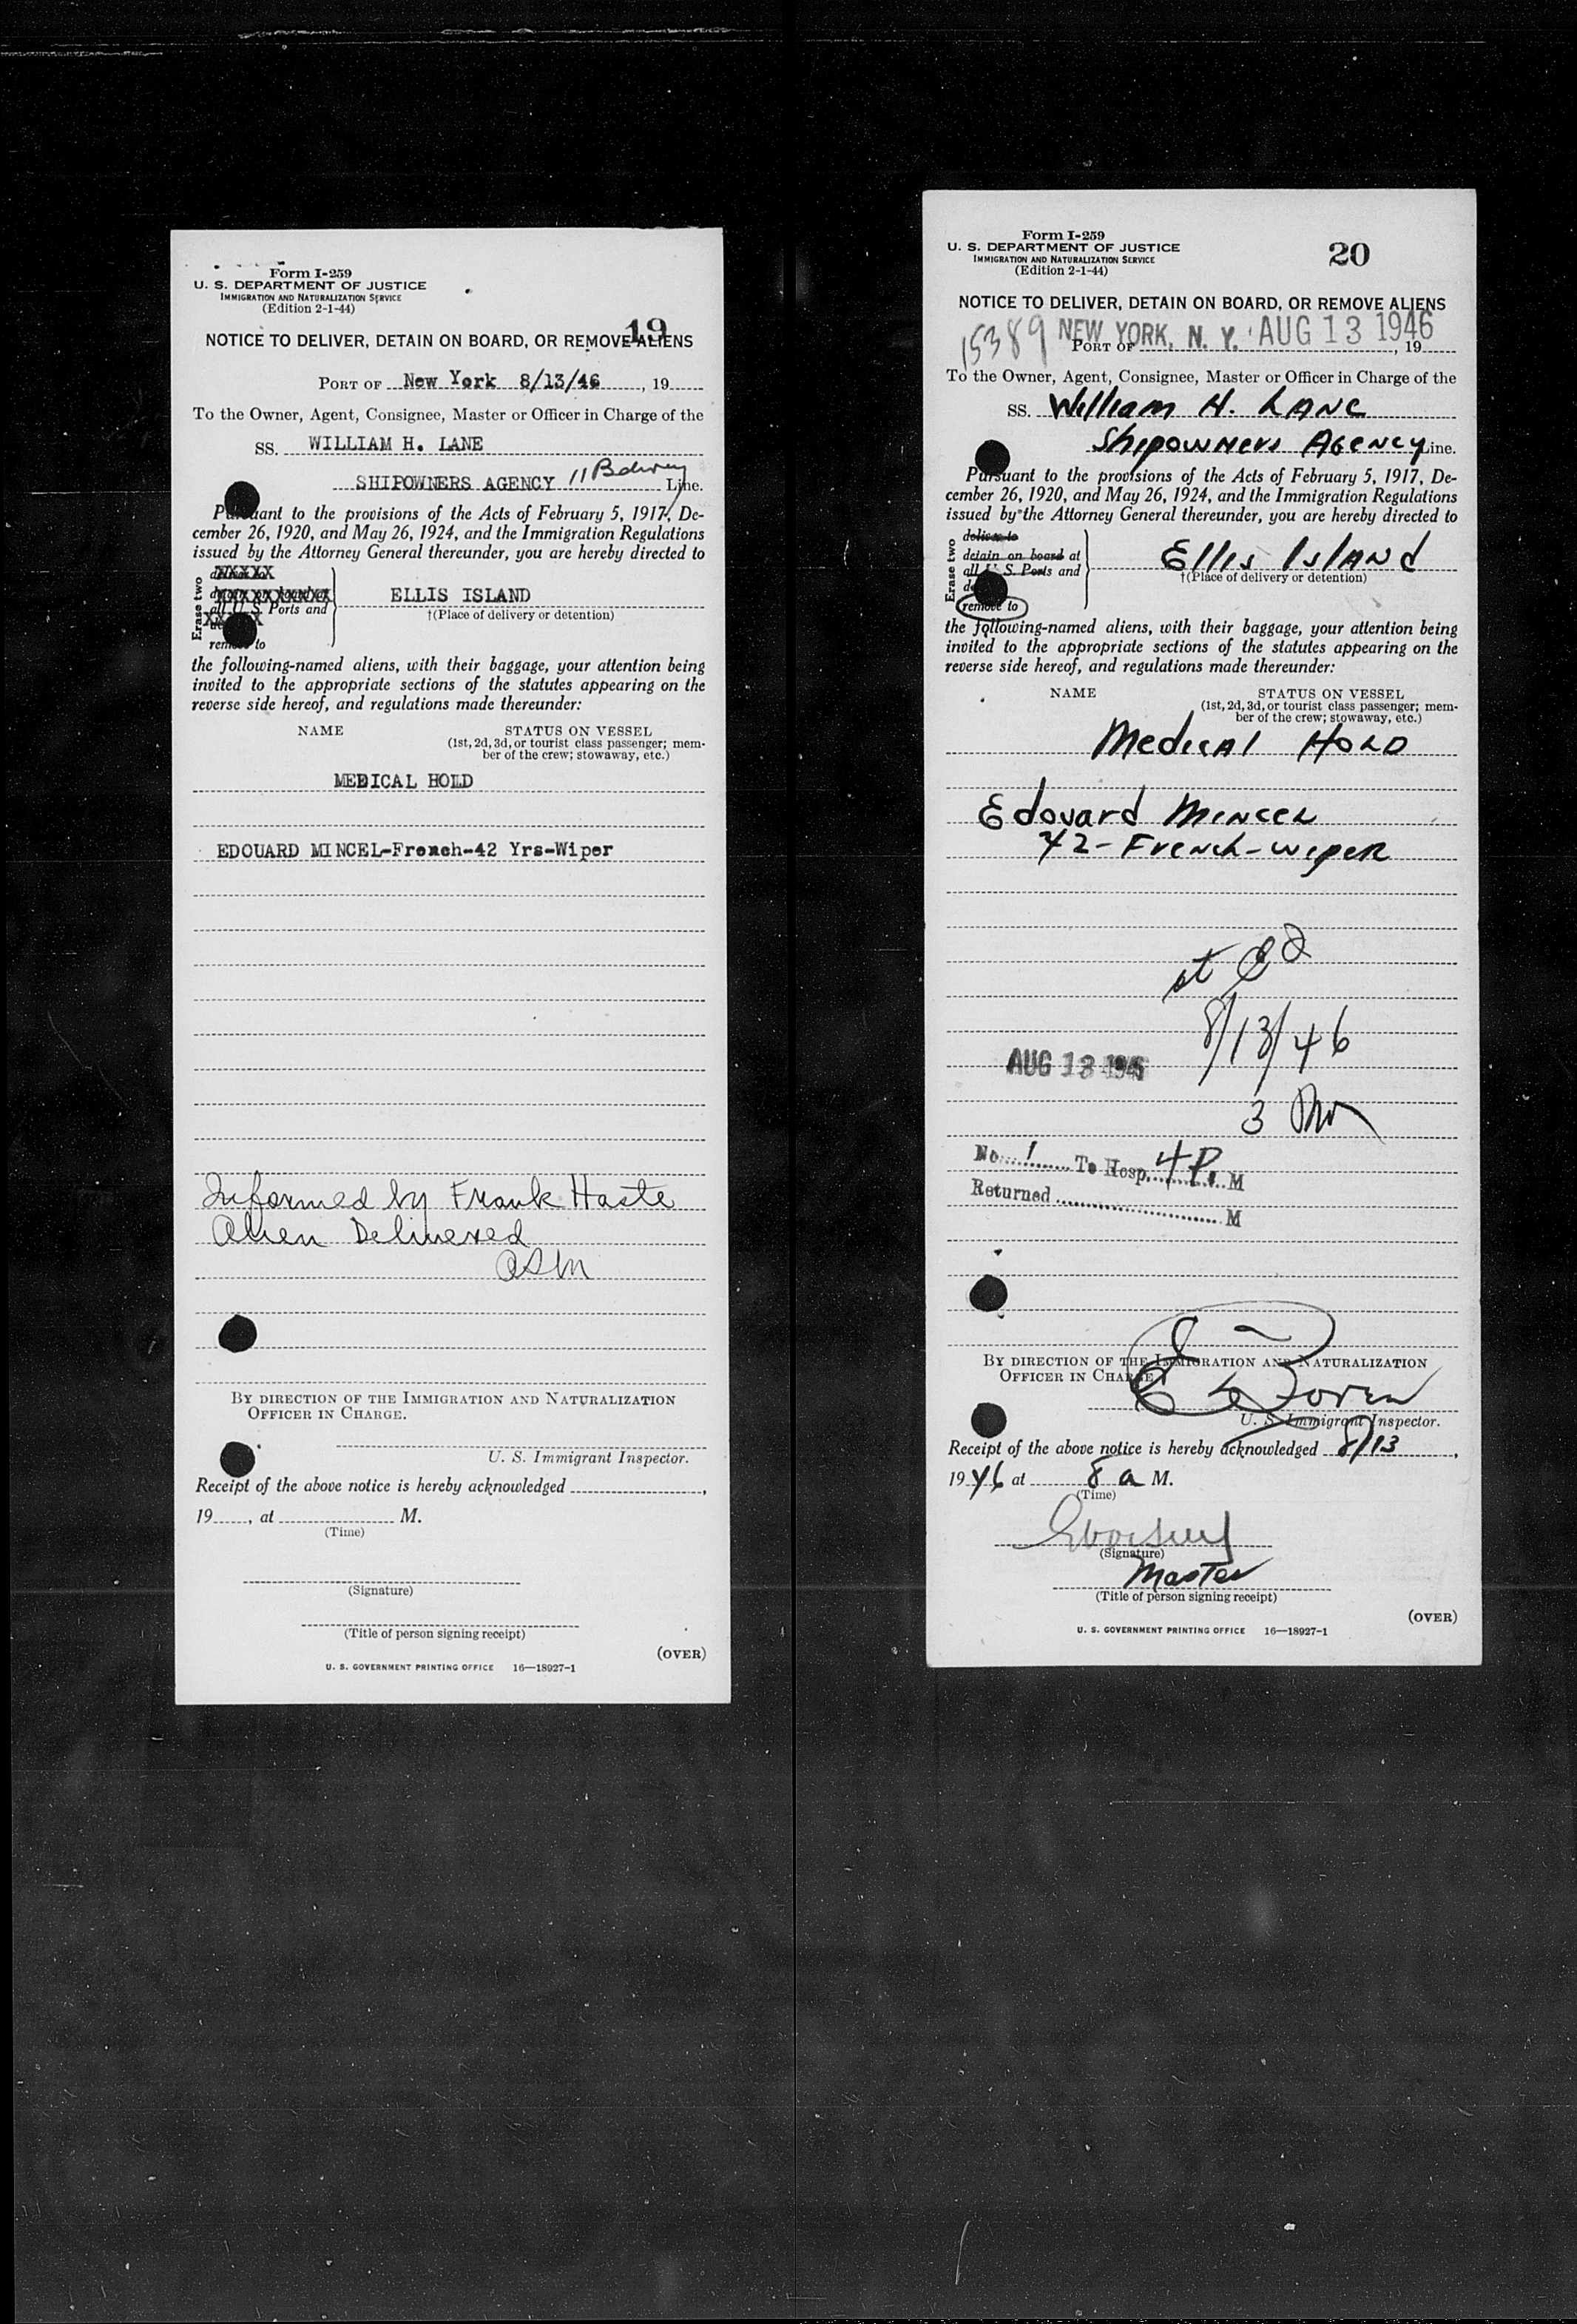 Form I-259
U. S. DEPARTMENT OF JUSTICE
IMMIGRATION AND NATURALIZATION SERVICE
(Edition 2-1-44)
19
NOTICE TO DELIVER, DETAIN ON BOARD, OR REMOVE ALIENS
PORT OF New York 8/13/46, 19
To the Owner, Agent, Consignee, Master or Officer in Charge of the
SS. WILLIAM H. LANE
SHIPOWNERS AGENCY 11 Bdwy Line.
Pursuant to the provisions of the Acts of February 5, 1917, De-
cember 26, 1920, and May 26, 1924, and the Immigration Regulations
issued by the Attorney General thereunder, you are hereby directed to
Erase two
all U. S. Ports and
remove to
ELLIS ISLAND
†(Place of delivery or detention)
the following-named aliens, with their baggage, your attention being
invited to the appropriate sections of the statutes appearing on the
reverse side hereof, and regulations made thereunder:
NAME STATUS ON VESSEL
(1st, 2d, 3d, or tourist class passenger; mem-
ber of the crew; stowaway, etc.)
MEDICAL HOLD
EDOUARD MINCEL-French-42 Yrs-Wiper
Informed by Frank Haste
Alien Delivered
BY DIRECTION OF THE IMMIGRATION AND NATURALIZATION
OFFICER IN CHARGE.
U. S. Immigrant Inspector.
Receipt of the above notice is hereby acknowledged ,
19 , at M.
(Time)
(Signature)
(Title of person signing receipt)
(OVER)
U. S. GOVERNMENT PRINTING OFFICE 16—18927-1
Form I-259
U. S. DEPARTMENT OF JUSTICE
IMMIGRATION AND NATURALIZATION SERVICE
(Edition 2-1-44)
20
NOTICE TO DELIVER, DETAIN ON BOARD, OR REMOVE ALIENS
15389 NEW YORK, N. Y. AUG 13 1946
PORT OF , 19
To the Owner, Agent, Consignee, Master or Officer in Charge of the
SS. William H. LANE
Shipowners Agency Line.
Pursuant to the provisions of the Acts of February 5, 1917, De-
cember 26, 1920, and May 26, 1924, and the Immigration Regulations
issued by the Attorney General thereunder, you are hereby directed to
Erase two
deliver to
detain on board at
all U. S. Ports and
remove to
Ellis Island
†(Place of delivery or detention)
the following-named aliens, with their baggage, your attention being
invited to the appropriate sections of the statutes appearing on the
reverse side hereof, and regulations made thereunder:
NAME STATUS ON VESSEL
(1st, 2d, 3d, or tourist class passenger; mem-
ber of the crew; stowaway, etc.)
Medical Hold
Edouard Mincel
42-French-wiper
8/13/46
AUG 13 1946
3 PM
No. 1 To Hosp. 4 P. M
Returned M
BY DIRECTION OF THE IMMIGRATION AND NATURALIZATION
OFFICER IN CHARGE.
U. S. Immigrant Inspector.
Receipt of the above notice is hereby acknowledged 8/13,
1946 at 8 a M.
(Time)
(Signature)
Master
(Title of person signing receipt)
(OVER)
U. S. GOVERNMENT PRINTING OFFICE 16—18927-1